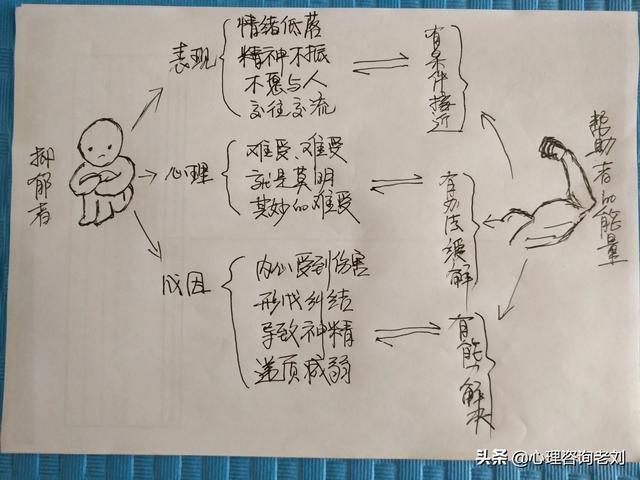 抑郁者
表现
情绪低落
精神不振
不愿与人
交往交流
有条件接近
心理
难受、难受
就是莫明
其妙的难受
有办法缓解
成因
内心受到伤害
形成纠结
导致神精
递质减弱
有能力解决
帮助者的能量
头条 @心理咨询老刘